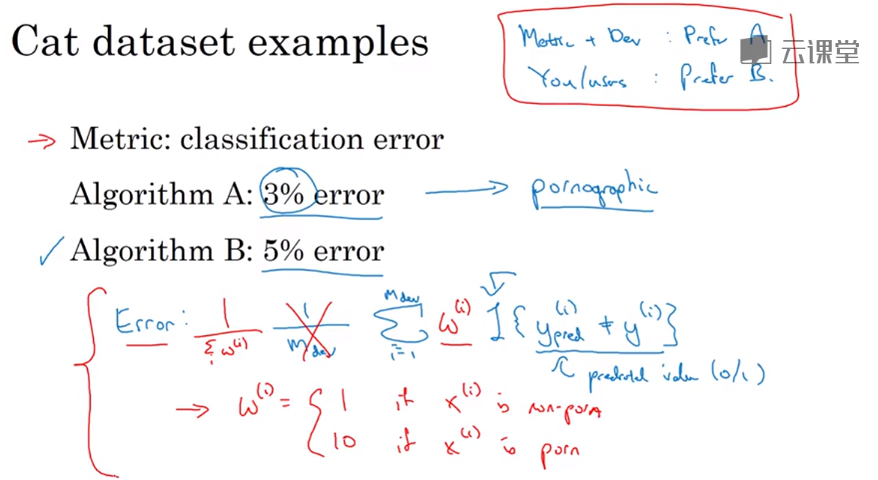 Cat dataset examples
Metric + Dev : Prefer A
You/users : Prefer B.
云课堂
→ Metric: classification error
Algorithm A: 3% error → pornographic
✓ Algorithm B: 5% error
Error: 1/∑ᵢ w⁽ⁱ⁾ 1/m_dev ∑ᵢ₌₁^m_dev w⁽ⁱ⁾ I{y_pred⁽ⁱ⁾ ≠ y⁽ⁱ⁾}
predicted value (0/1)
→ w⁽ⁱ⁾ = { 1 if x⁽ⁱ⁾ is non-porn
10 if x⁽ⁱ⁾ is porn